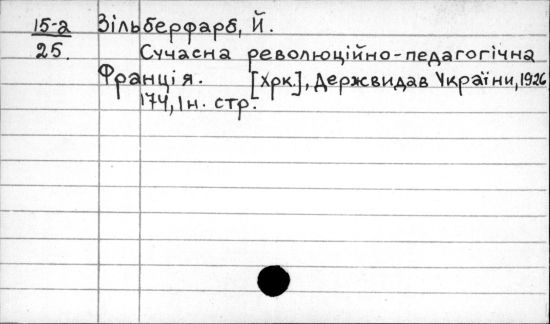 15-2 Зільберфарб, Й.
25. Сучасна революційно-педагогічна
Франція. [Хрк.], Держвидав України, 1926
174, 1 н. стр.